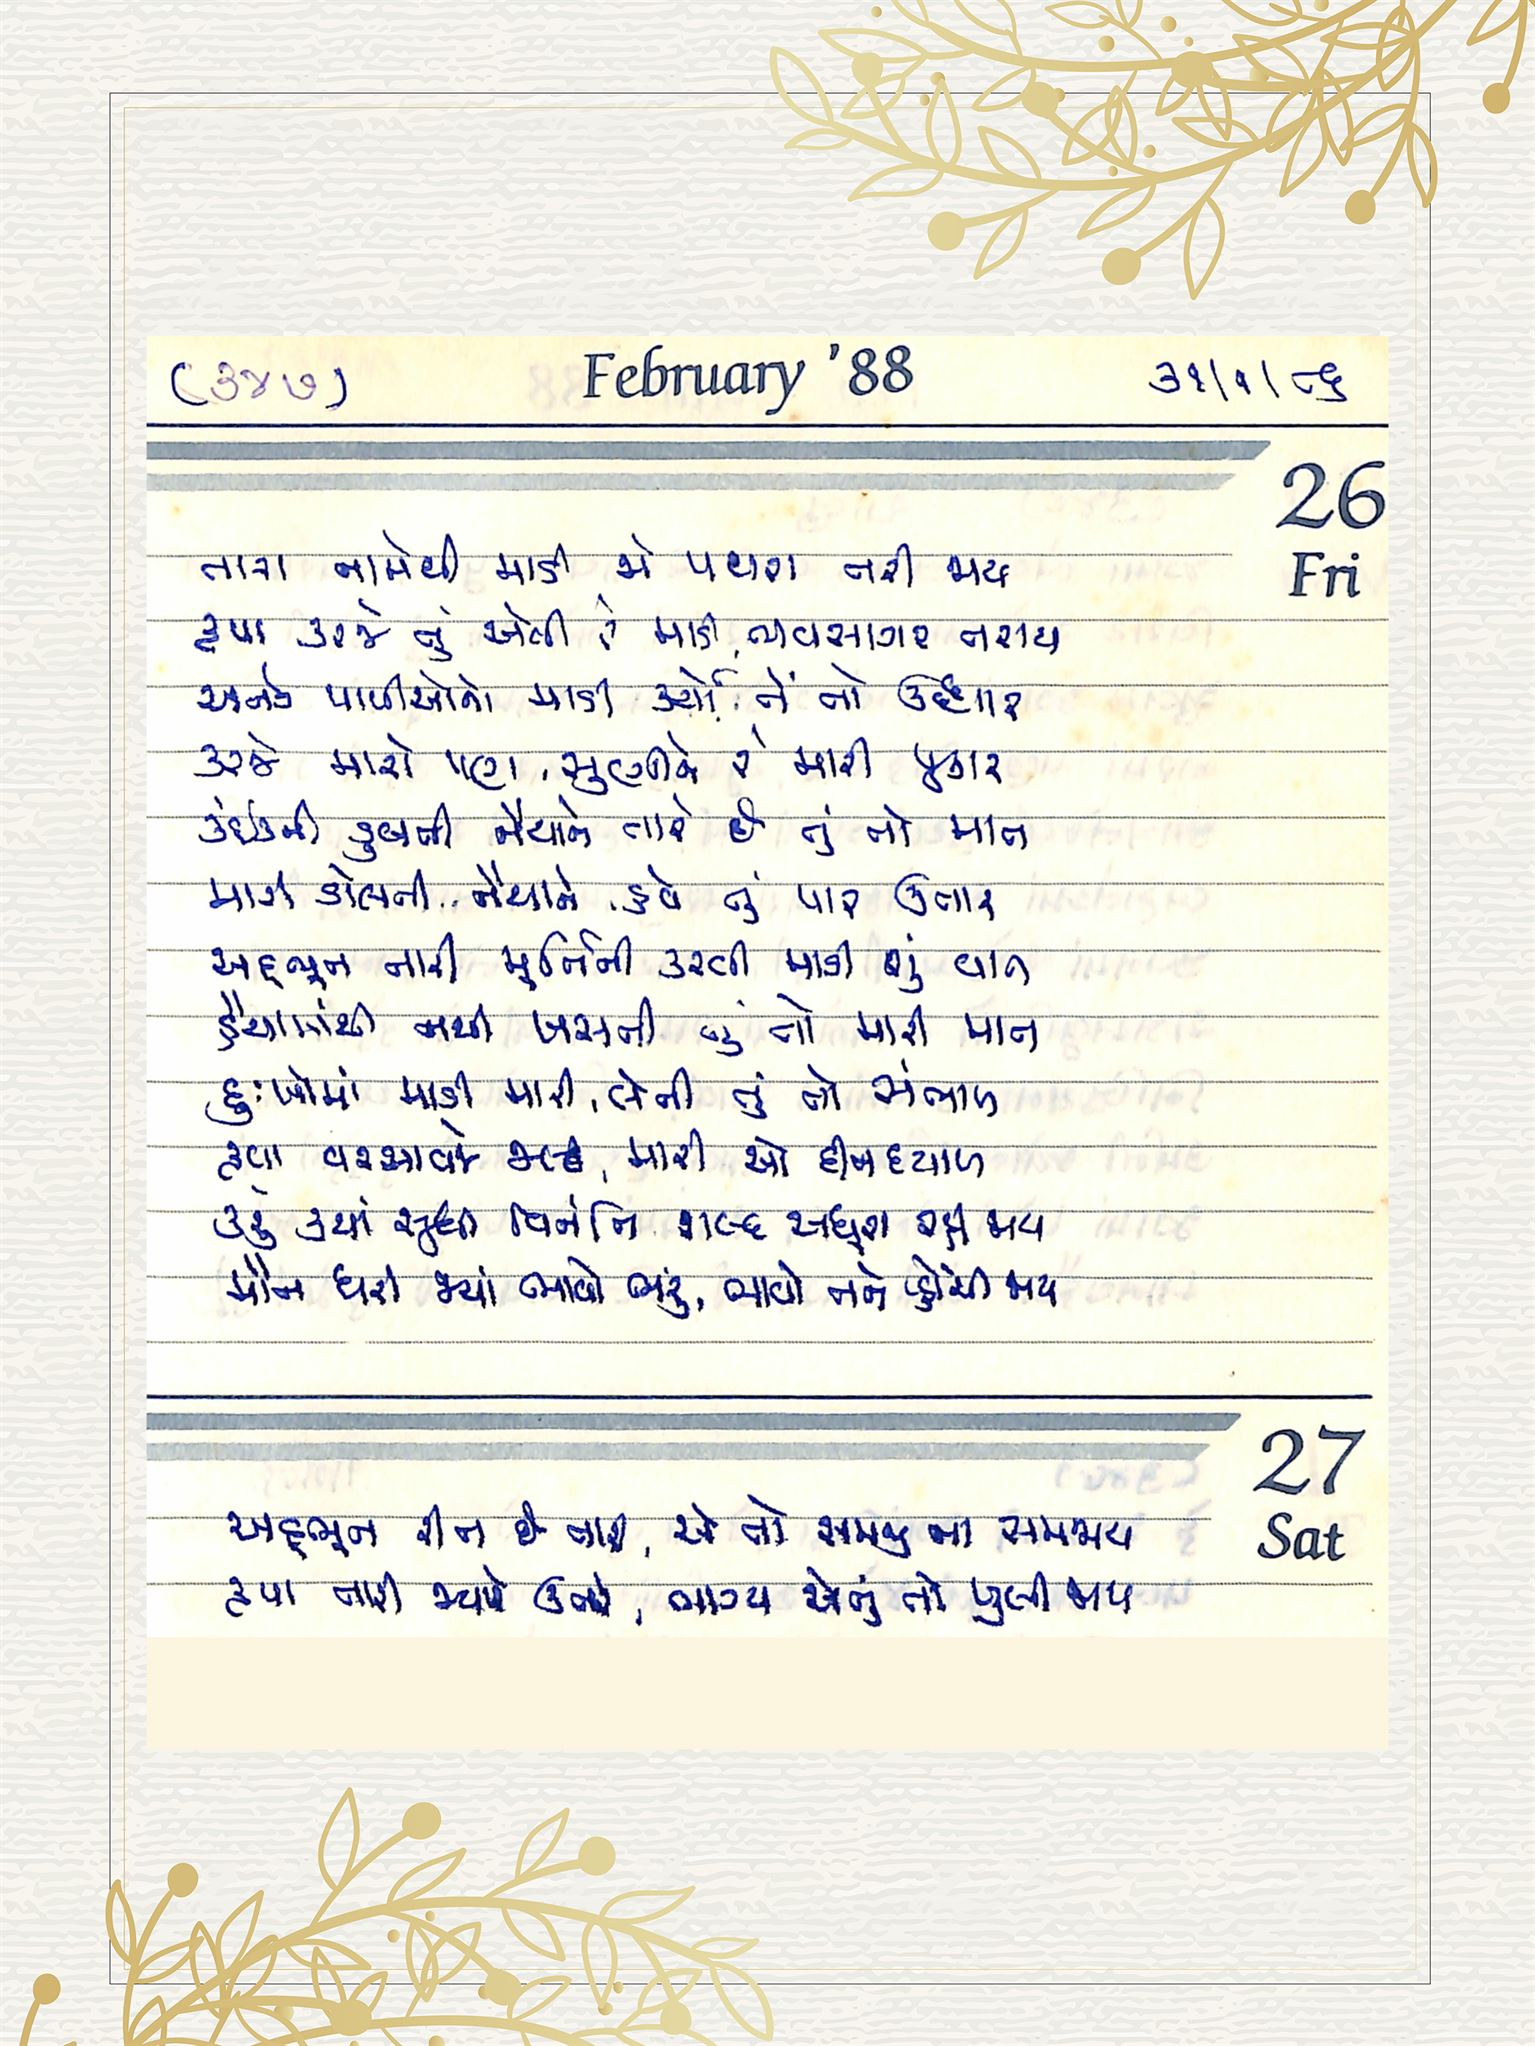 (૩૪૭) February '88 ૩૧/૧/૮૬
26
Fri
તારા નામેથી માડી જો પથરા તરી જાય
કૃપા કરજે તું એવી રે માડી, ભવસાગર તરાય
અનેક પાપીઓનો માડી કર્યો તેં તો ઉદ્ધાર
કરજે મારો પણ, સુણીને રે મારી પુકાર
કંઈકની ડુબતી નૈયાને તારે છે તું તો માત
મારી ડોલતી નૈયાને હવે તું પાર ઉતાર
અદ્દભૂત તારી મૂર્તિની કરવી માડી શું વાત
હૈયામાંથી નથી ખસતી તું તો મારી માત
દુઃખોમાં માડી મારી, લેતી તું તો સંભાળ
કૃપા વરસાવજે મારી ઓ દીનદયાળ
કરું ક્યાં સુધી વિનંતિ શબ્દ અધૂરા રહી જાય
મૌન ધરી જ્યાં ભાવો ભરું, ભાવો તને પ્હોંચી જાય
27
Sat
અદ્દભૂત રીત છે તારી, એ તો સમજી ના સમજાય
કૃપા તારી જ્યારે ઉતરે, ભાગ્ય એનું તો ખુલી જાય